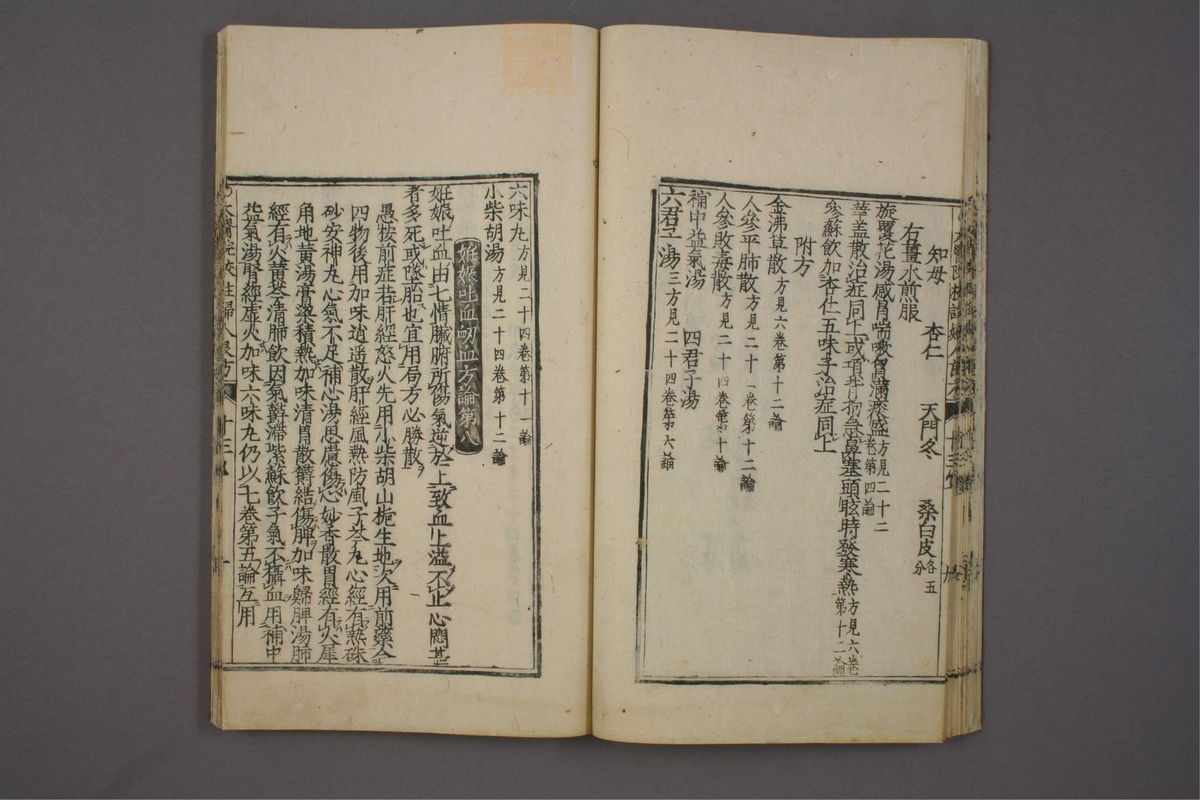 知母　杏仁　天門冬　桑白皮各五分
右薑水煎服
旋覆花湯感冒喘嗽胷滿痰盛方見二十二卷第四論
華盖散治症同上或項背拘急鼻塞頭眩時發寒熱方見六卷第十二論
參蘇飲加杏仁五味子治症同上
附方
金沸草散方見六卷第十二論
人參平肺散方見二十一卷第十二論
人參敗毒散方見二十四卷第十論
補中益氣湯　四君子湯
六君子湯三方見二十四卷第六論
六味丸方見二十四卷第十一論
小柴胡湯方見二十四卷第十二論
妊娠吐血衂血方論第八
妊娠吐血由七情臟腑所傷氣逆於上致血上溢不止心悶甚
者多死或墮胎也宜用局方必勝散
愚按前症若肝經怒火先用小柴胡山梔生地次用前藥合
四物後用加味逍遥散肝經風熱防風子芩丸心經有熱硃
砂安神丸心氣不足補心湯思慮傷心妙香散胃經有火犀
角地黄湯膏粱積熱加味清胃散欝結傷脾加味歸脾湯肺
經有火黄芩清肺飲因氣欝滯紫蘇飲子氣不攝血用補中
益氣湯腎經虛火加味六味丸仍以七卷第五論互用